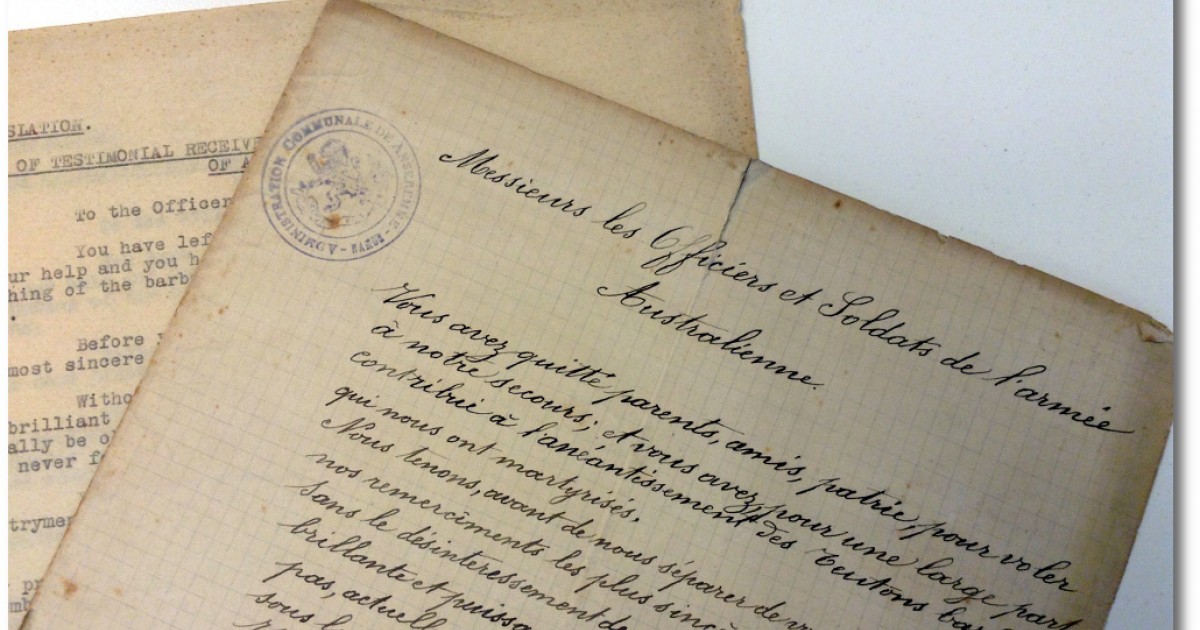 SLATION.
OF TESTIMONIAL RECEIV
OF A
To the Officer
You have lef
ur help and you h
hing of the barb
Before
most sincere
Witho
brilliant
ally be o
never f
tryme
pr
ADMINISTRATION COMMUNALE DE ANSEREMME - NAMUR -
Messieurs les Officiers et Soldats de l'armée
Australienne.
Vous avez quitté parents, amis, patrie, pour voler
à notre secours; et vous avez pour une large part
contribué à l'anéantissement des Teutons bar
qui nous ont martyrisés.
Nous tenons, avant de nous séparer de v
nos remercîments les plus sinc
sans le désintéressement de
brillante et puissa
pas, actuell
sous l